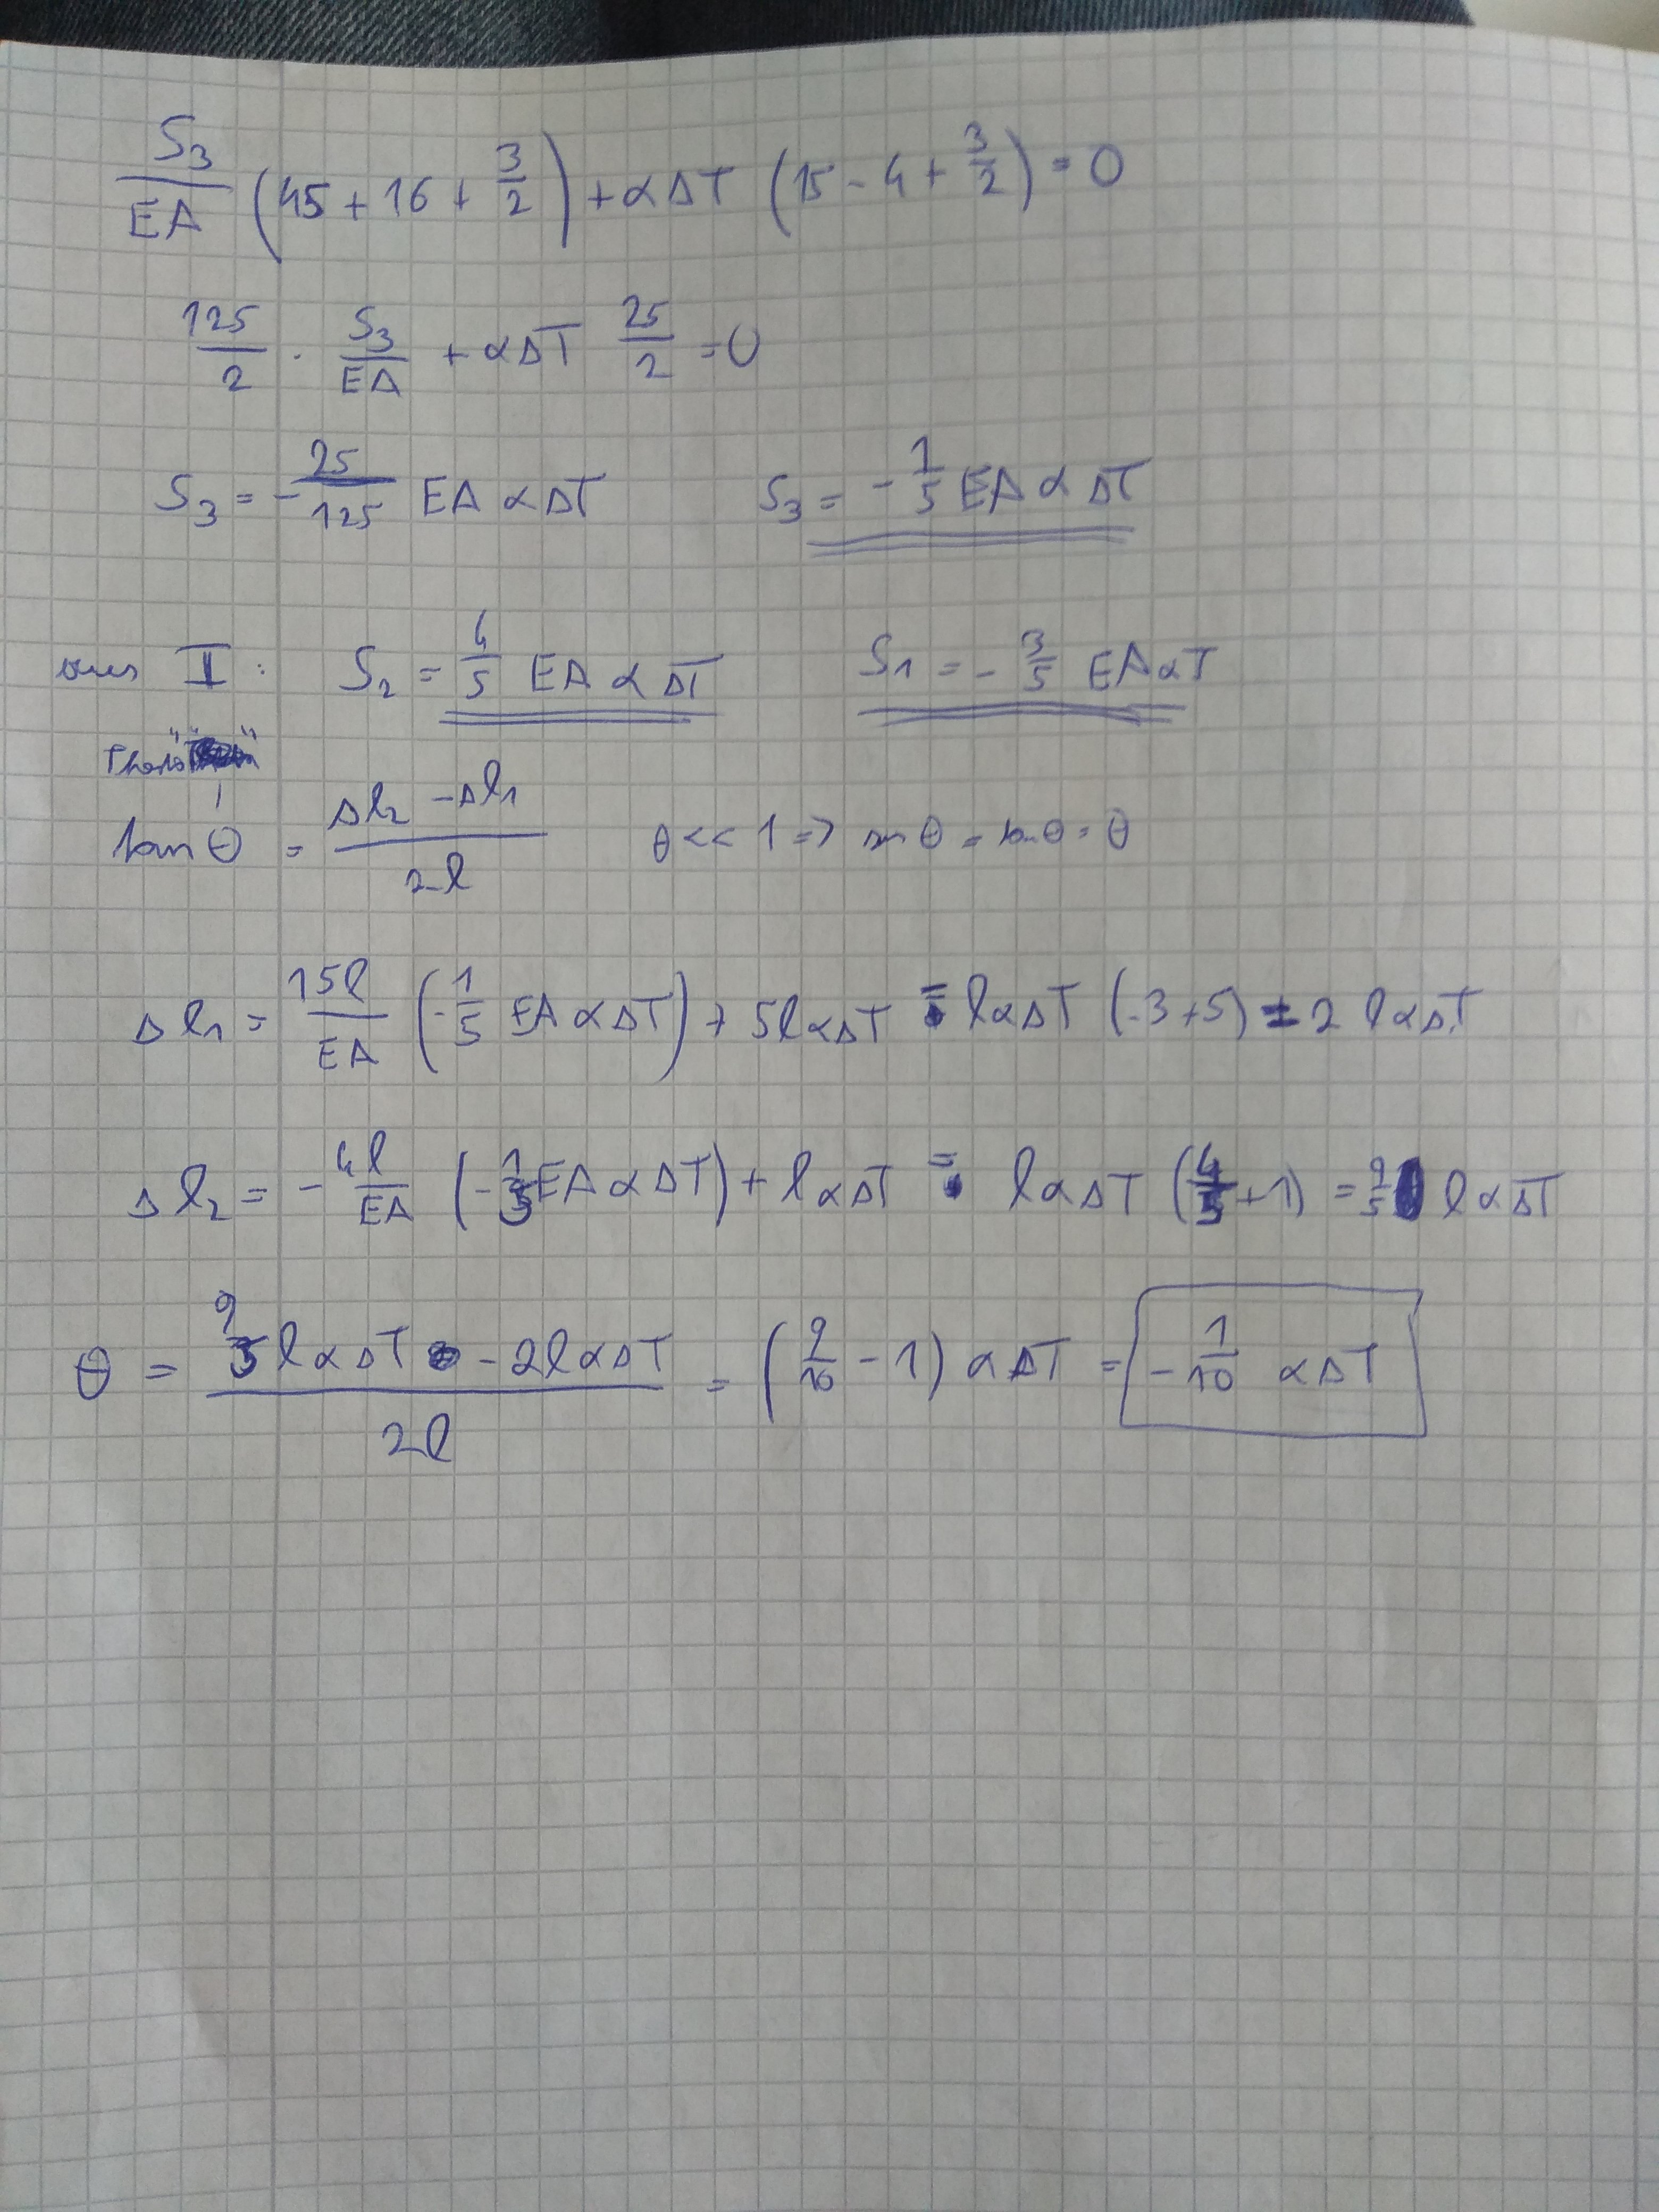 S₃/EA (45 + 16 + 3/2) + αΔT (15 - 4 + 3/2) = 0
125/2 · S₃/EA + αΔT 25/2 = 0
S₃ = - 25/125 EA αΔT S₃ = - 1/5 EA αΔT
aus I : S₂ = 4/5 EA α ΔT S₁ = - 3/5 EA αT
tan θ = Δl₂ - Δl₁ / 2l θ << 1 => sin θ = tan θ = θ
Δl₁ = 15l/EA (- 1/5 EA αΔT) + 5lαΔT = lαΔT (-3 + 5) = 2 lαΔT
Δl₂ = - 4l/EA (- 1/5 EA αΔT) + lαΔT = lαΔT (4/5 + 1) = 9/5 lαΔT
θ = 9/5 lαΔT - 2lαΔT / 2l = (9/10 - 1) αΔT = - 1/10 αΔT